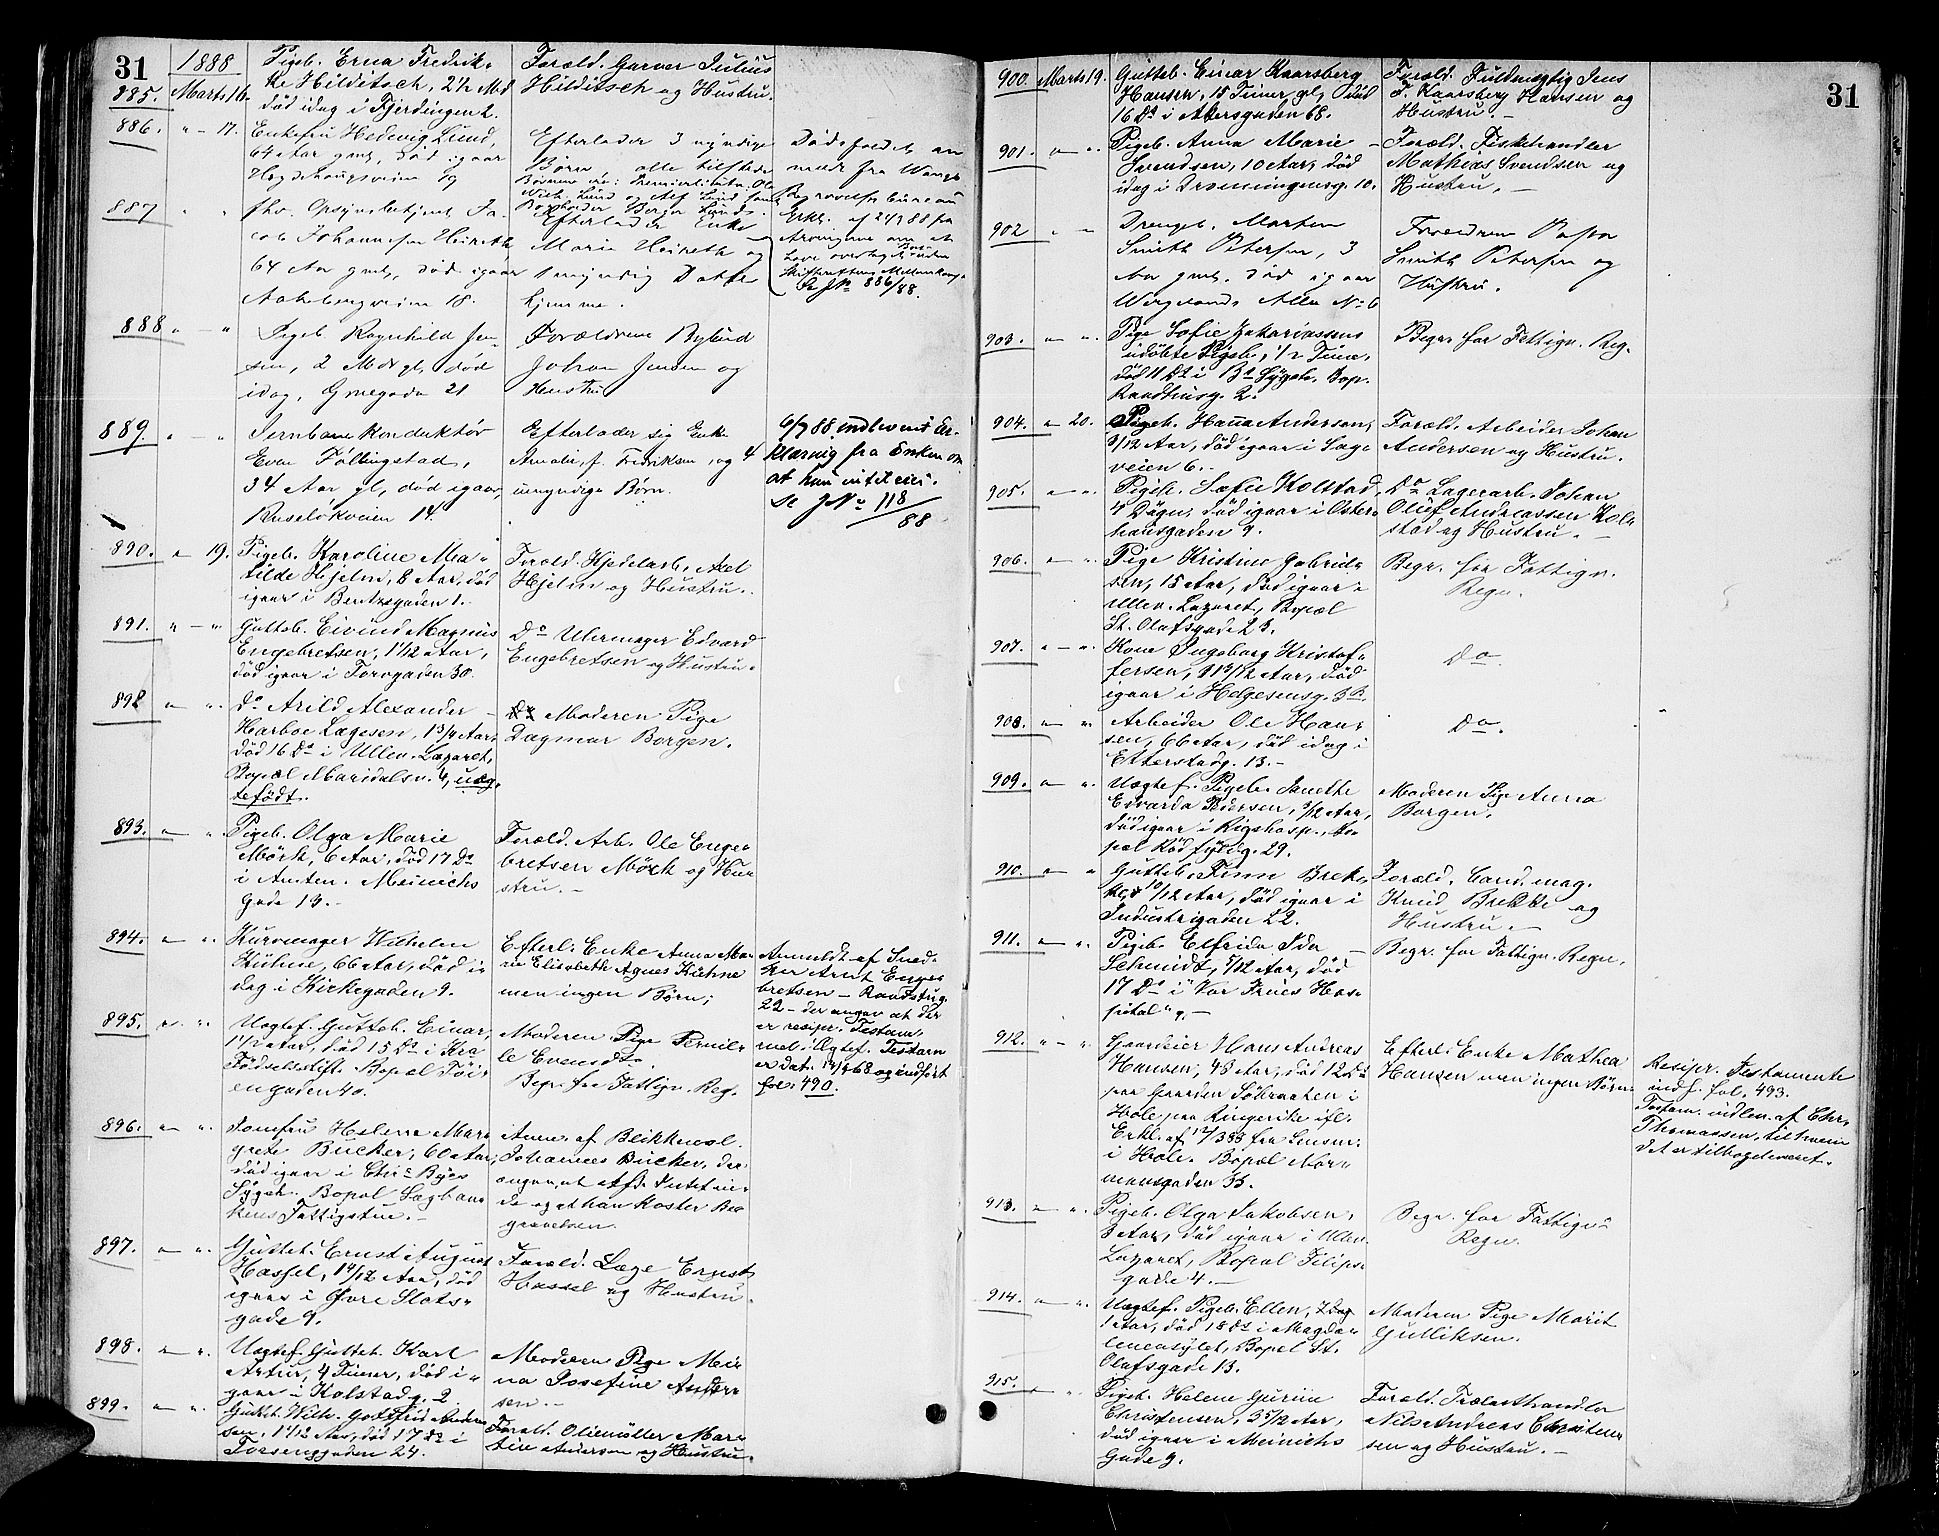 31
1888
885. Marts 16.
Pigeb. Erna Fredrik-
ke Hilditsch, 2½ Md
død idag i Fjerdingen 2.
Foræld. Garver Julius
Hilditsch og Hustru.
886. " - 17.
Enkefru Hedevig Lund,
64 Aar gml, død igaar
Hegdehaugsveien 69
Efterlader 3 myndige
Børn, alle tilstede
Børnene ere: Premierløitn. Ole
Lund og Alf Lund samt
Bogholder Lund.
Dødsfaldet an
meldt fra Wangs
Begravelsesbureau
Erkl. af 24/3 88 fra
Arvingerne om at
have overtaget Boet uden
Skifterettens Mellemkomst
Se J No 886/88.
887 " "
fhv. Opsynsbetjent Ja-
cob Johannesen Heireth,
64 Aar gml, død igaar
Aakebergveien 18.
Efterlader Enke
Marie Heireth og
1 myndig Datter
hjemme.
888 " - "
Pigeb. Ragnhild Jen-
sen, 2 Mdr gl, død
idag, Grnegade 21
Forældrene Bybud
Johan Jensen og
Hustru
889. " - "
Jernbanekonduktør
Even Føllingstad,
34 Aar gl, død igaar,
Ruseløkveien 14.
Efterlader sig Enke
Amalie, f. Fredriksen, og 4
umyndige Børn.
6/7 88 indleveret Er-
klæring fra Enken om
at hun intet eier.
Se J No 118/88
890. " 19.
Pigeb. Karoline Ma-
tilde Hjelm, 8 Aar, død
igaar i Bentsegaden 1.
Foræld. Kjedelarb. Axel
Hjelm og Hustru.
891. " - "
Gutteb. Eivind Magnus
Engebretsen, 1 1/12 Aar,
død igaar i Torvgaden 30.
Do Uhrmager Edvard
Engebretsen og Hustru.
892 " "
Do Arild Alexander
Harboe Lagesen, 1 3/4 Aar,
død 16 Ds i Ullev. Lazaret,
Bopæl Maridalsv. 4, uæg-
tefødt.
Moderen Pige
Dagmar Borgen.
893. " "
Pigeb. Olga Marie
Mörk, 6 Aar, død 17 Ds
i Amten. Meinichs
Gade 13.
Foræld. Arb. Ole Enge-
bretsen Mörk og Hu-
stru.
894. " "
Kurvmager Wilhelm
Kühne, 66 Aar, død i-
dag i Kirkegaden 9.
Efterl. Enke Anna Ma-
rie Elisabeth Agnes Kühne
men ingen Børn;
Anmeldt af Sned-
ker Arnt Enge-
bretsen - Raadstug.
22 - der angav at der
er resipr. Testam.
mel. Ægtef. Testam
er dat. 68 og indført
fol. 490.
895. " "
Uægtef. Gutteb. Einar,
1 1/2 Aar, død 15 Ds i Kra
Fødselsstift. Bopæl Töi-
engaden 40.
Moderen Pige Pernil-
le Evensdtr
Begr. for Fattigv. Reg.
896. " "
Jomfru Helene Mar-
grete Bücker, 60 Aar,
død igaar i Chra Byes
Sygeh. Bopæl Sagban-
kens Fattigstue.
Anm. af Blikkensl.
Johannes Bücker, der
angav, at afd. Intet eie-
de og at han koster Be-
gravelsen.
897. " "
Gutteb. Ernst August
Hassel, 1 4/12 Aar, død
igaar i Øvre Slots-
gade 9.
Foræld. Læge Ernst
Hassel og Hustru.
898. " "
Uægtef. Gutteb. Karl
Artur, 4 Timer, død i-
gaar i Kolstadg. 2
Moderen Pige Mei-
na Josefine Ander-
sen.
899. " "
Gutteb. Wilh. Gottfrid Ander-
sen, 1 1/12 Aar, død 17 Ds i
Torvenggaden 24.
Foræld. Oliemøller Mar-
tin Andersen og Hustru.
31
900. Marts 19.
Gutteb. Einar Kaarsberg
Hansen, 15 Timer gl, død
16 Ds i Akersgaden 68.
Foræld. Fuldmægtig Jens
F. Kaarsberg Hansen og
Hustru.
901. " "
Pigeb. Anna Marie
Svendsen, 10 Aar, død
idag i Dronningensg. 10.
Foræld. Fiskehandler
Mathias Svendsen og
Hustru.
902 " "
Drengeb. Morten
Smith Petersen, 3
Aar gml. død igaar
Wergelands Alle No 6
Forældrene
Smith Petersen og
Hustru.
903. " "
Pige Sofie Zakariassens
udøbte Pigeb., 1/2 Time,
død 11 Ds i Bs Sygeh. Bop.
Raadhusg. 2.
Begr. for Fattigv. Reg.
904. " 20.
Pigeb. Hanna Andersen,
3/12 Aar, død igaar i Sag-
veien 6.
Foræld. Arbeider Johan
Andersen og Hustru.
905. " "
Pigeb. Sofie Kolstad,
4 Døgn, død igaar i Oster-
hausgaden 9.
Do Lagerarb. Johan
Oluf Andreassen Kol-
stad og Hustru.
906. " "
Pige Kristine Gabriel-
sen, 15 Aar, død igaar i
Ullev. Lazaret, Bopæl
St. Olafsgade 23.
Begr. for Fattigv.
Regn.
907. " - "
Kone Ingeborg Kristof-
fersen, Aar, død
igaar i Helgesensg. 3 B.
Do.
908. " "
Arbeider Ole Han-
sen, 66 Aar, død idag i
Etterstadg. 13.
Do.
909. " "
Uægtef. Pigeb. Janette
Edvarda Pedersen, 3/12 Aar,
død igaar i Rigshosp., Bo-
pæl Rødfyldg. 29.
Moderen Pige Anna
Borgen.
910. " "
Gutteb. Finn Brek-
ke, 10/12 Aar, død igaar i
Industrigaden 22.
Foræld. Cand. mag.
Knud Brekke og
Hustru.
911. " "
Pigeb. Elfrida Ida
Schmidt, 5/12 Aar, død
17 Ds i Vor Frues Hos-
pital.
Begr. for Fattigv. Regn.
912. " - "
Gaardeier Hans Andreas
Hansen, 48 Aar, død 12 Ds
paa Gaarden i
Hole paa Ringerike ifl.
Erkl. af 12/3 88 fra Lensm.
i Hole. Bopæl Nor-
mansgaden 33.
Efterl. Enke Mathea
Hansen men ingen Børn.
Resipr. Testamente
indf. fol. 493.
Testam. indlev. af Chr.
Thomassen, til hvem
det er tilbageleveret.
913. " "
Pigeb. Olga Jakobsen,
3 Aar, død igaar i Ullev.
Lazaret, Bopæl Filips-
gade 4.
Begr. for Fattigv.
Regn.
914. " "
Uægtef. Pigeb. Ellen,
1 Aar, død 18 Ds i Magda-
leneasylet, Bopæl St.
Olafsgade 13.
Moderen Pige Marit
Gulliksen.
915. " "
Pigeb. Helene Gurine
Christensen, 3 5/12 Aar,
død igaar i Meinichs
Gade 9.
Foræld. Trælasthandler
Nils Andreas Christen-
sen og Hustru.